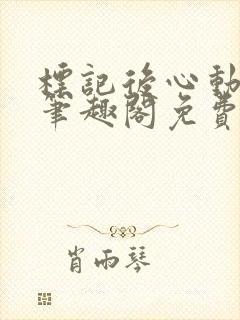 標記後心動
筆趣閣免費
肖雨琴